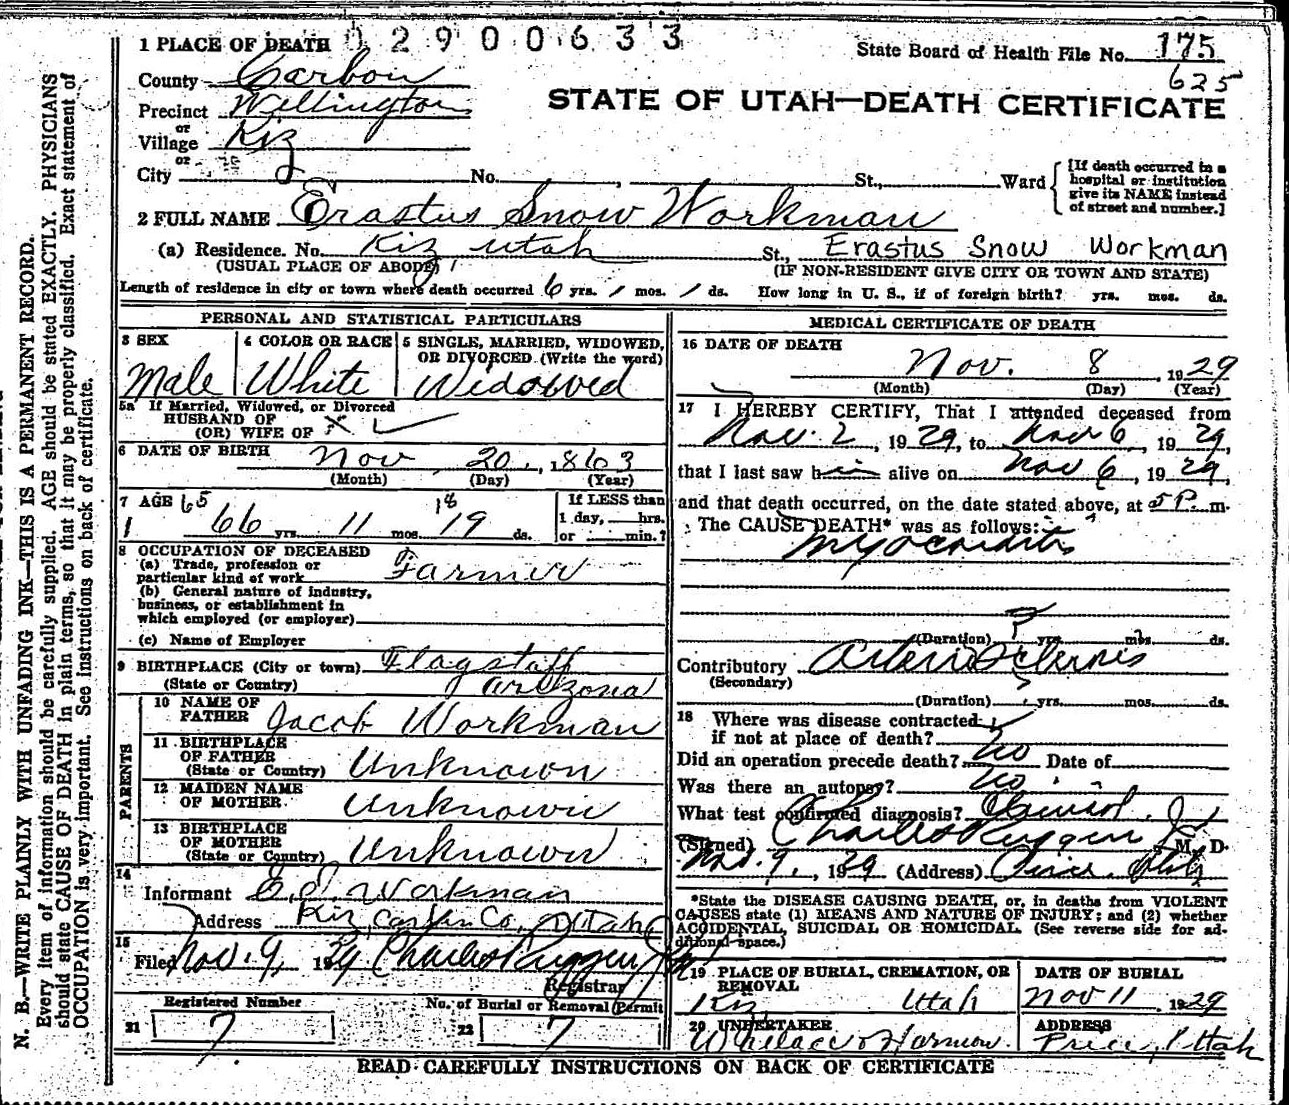 1 PLACE OF DEATH 02900633
State Board of Health File No. 175
625
County Carbon
STATE OF UTAH—DEATH CERTIFICATE
Precinct Wellington
or
Village Kiz
or
City No. , St., Ward
[If death occurred in a
hospital or institution
give its NAME instead
of street and number.]
2 FULL NAME Erastus Snow Workman
(a) Residence. No. Kiz Utah St., Erastus Snow Workman
(USUAL PLACE OF ABODE) (IF NON-RESIDENT GIVE CITY OR TOWN AND STATE)
Length of residence in city or town where death occurred 6 yrs. 1 mos. 1 ds. How long in U. S., if of foreign birth? yrs. mos. ds.
PERSONAL AND STATISTICAL PARTICULARS
3 SEX 4 COLOR OR RACE 5 SINGLE, MARRIED, WIDOWED,
OR DIVORCED (Write the word)
Male White Widowed
5a If Married, Widowed, or Divorced
HUSBAND OF
(OR) WIFE OF X
6 DATE OF BIRTH Nov 20, 1863
(Month) (Day) (Year)
7 AGE 65 18 If LESS than
66 yrs. 11 mos. 19 ds. 1 day, hrs.
or min.?
8 OCCUPATION OF DECEASED
(a) Trade, profession or
particular kind of work Farmer
(b) General nature of industry,
business, or establishment in
which employed (or employer)
(c) Name of Employer
9 BIRTHPLACE (City or town) Flagstaff
(State or Country) Arizona
PARENTS
10 NAME OF
FATHER Jacob Workman
11 BIRTHPLACE
OF FATHER
(State or Country) Unknown
12 MAIDEN NAME
OF MOTHER Unknown
13 BIRTHPLACE
OF MOTHER
(State or Country) Unknown
14
Informant E.S. Workman
Address Kiz, Carbon Co, Utah
15
Filed Nov. 9, 1929 Charles Ruggeri Jr
Registrar
Registered Number No. of Burial or Removal Permit
21 7 22 7
MEDICAL CERTIFICATE OF DEATH
16 DATE OF DEATH
Nov. 8 1929
(Month) (Day) (Year)
17 I HEREBY CERTIFY, That I attended deceased from
Nov. 2, 1929, to Nov 6, 1929,
that I last saw him alive on Nov 6, 1929,
and that death occurred, on the date stated above, at 5 P. m.
The CAUSE DEATH* was as follows:
Myocarditis
(Duration) ? yrs. mos. ds.
Contributory Arterio Sclerosis
(Secondary)
(Duration) yrs. mos. ds.
18 Where was disease contracted
if not at place of death?
Did an operation precede death? No Date of
Was there an autopsy? No
What test confirmed diagnosis? Clinical
(Signed) Charles Ruggeri Jr M. D.
Nov. 9, 1929 (Address) Price, Utah
*State the DISEASE CAUSING DEATH, or, in deaths from VIOLENT
CAUSES state (1) MEANS AND NATURE OF INJURY; and (2) whether
ACCIDENTAL, SUICIDAL OR HOMICIDAL. (See reverse side for ad-
ditional space.)
19 PLACE OF BURIAL, CREMATION, OR
REMOVAL
Kiz Utah
DATE OF BURIAL
Nov 11 1929
20 UNDERTAKER
Wallace & Harmon
ADDRESS
Price, Utah
READ CAREFULLY INSTRUCTIONS ON BACK OF CERTIFICATE
N. B.—WRITE PLAINLY WITH UNFADING INK—THIS IS A PERMANENT RECORD.
Every item of information should be carefully supplied. AGE should be stated EXACTLY. PHYSICIANS
should state CAUSE OF DEATH in plain terms, so that it may be properly classified. Exact statement of
OCCUPATION is very important. See instructions on back of certificate.